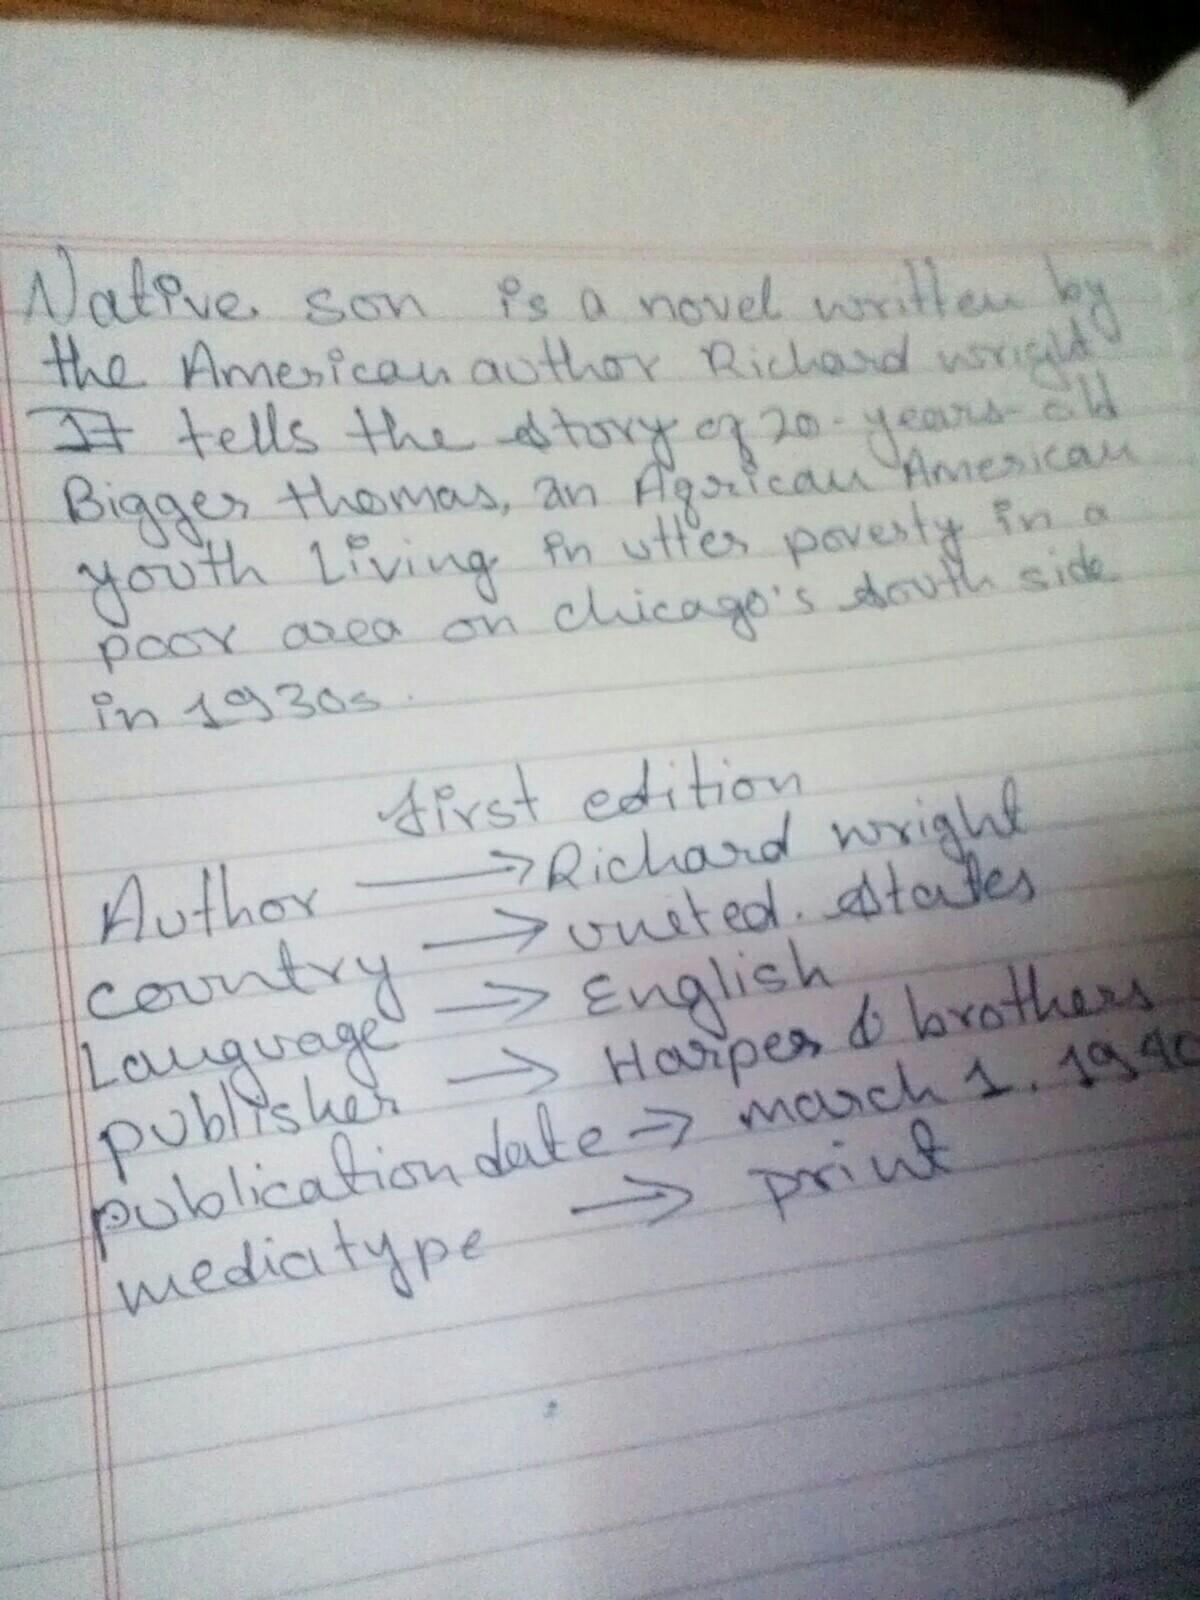 Native son is a novel written by
the American author Richard wright
It tells the story of 20-years-old
Bigger thomas, an African American
youth Living in utter poverty in a
poor area on chicago's south side
in 1930s.
first edition
Author → Richard wright
country → united. states
Language → English
publisher → Harper & brothers
publication date → march 1. 1940
media type → print